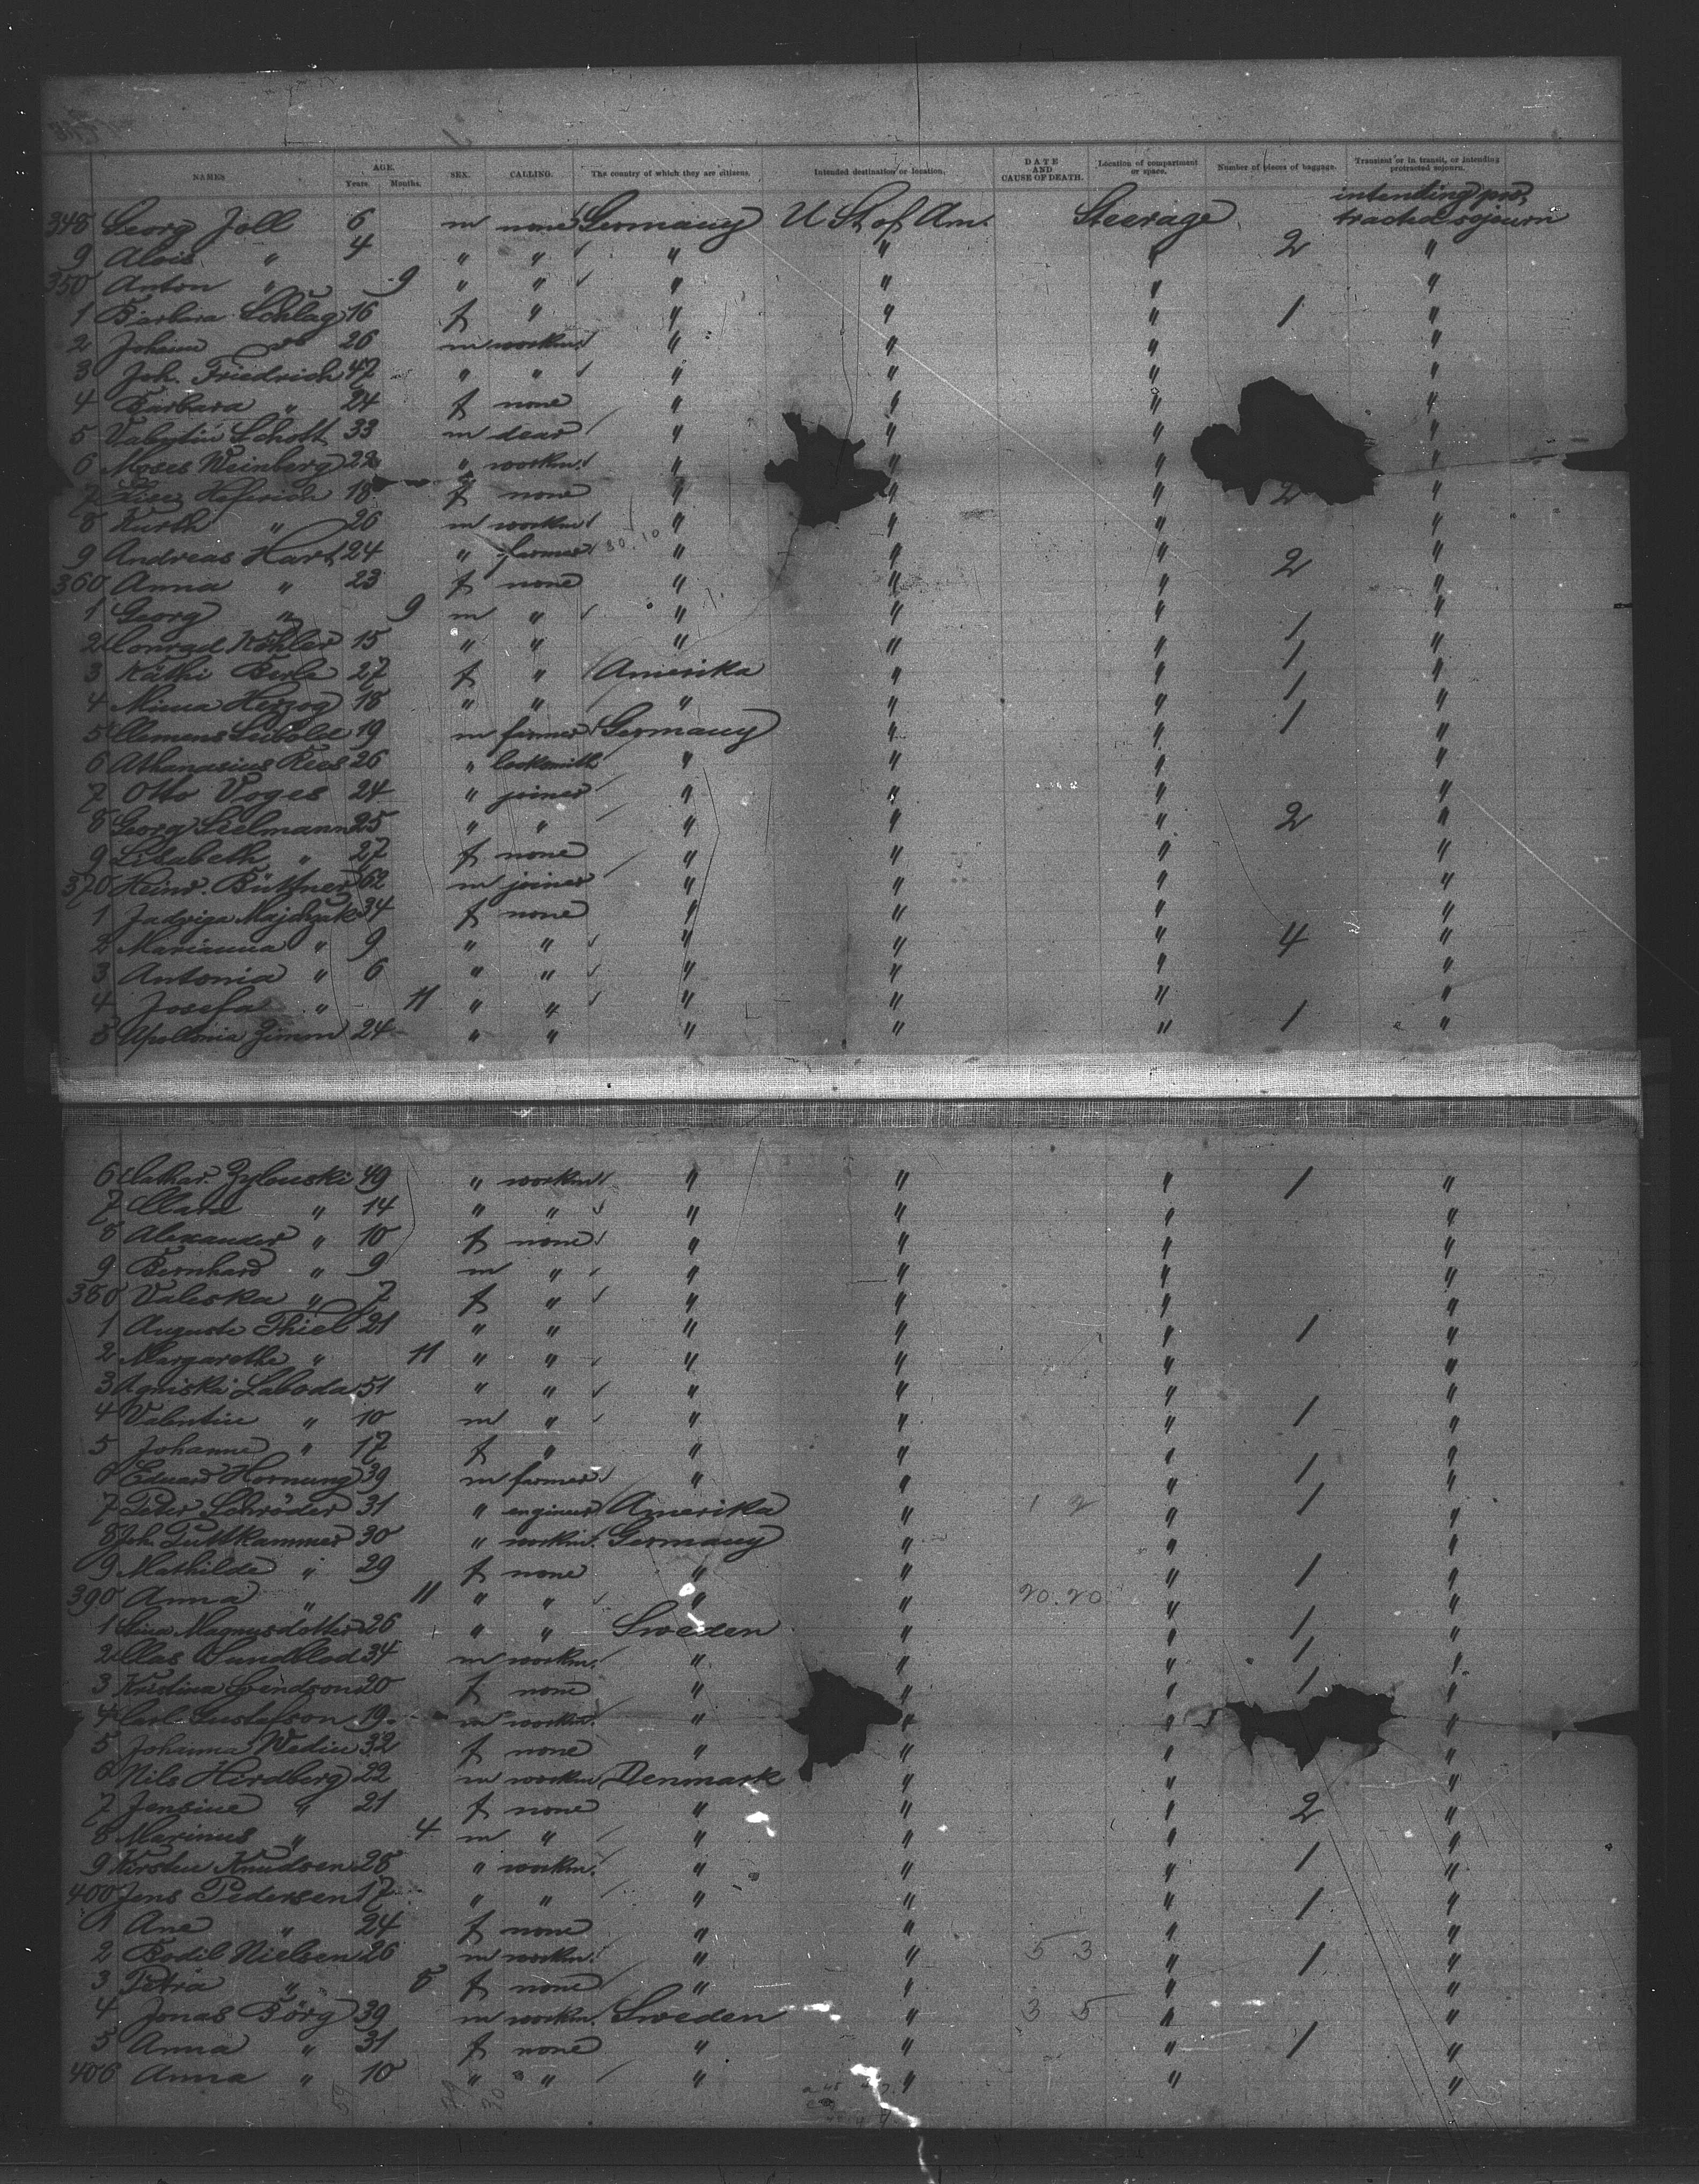 NAMES AGE. Years. Months. SEX. CALLING. The country of which they are citizens. Intended destination or location. DATE AND CAUSE OF DEATH. Location of compartment or space. Number of pieces of baggage. Transient or in transit, or intending protracted sojourn.
348 Georg Joll 6 m none Germany U St of Am. Steerage intending protracted sojourn
9 Alois " 4 " " " " " 2 "
350 Anton " 9 " " " " " "
1 Barbara Schlag 16 f " " " " 1 "
2 Johann do 26 m workm. " " " "
3 Joh. Friedrich 47 " " " " " "
4 Barbara " 24 f none " " " "
5 Valentin Schott 33 m " " " "
6 Moses Weinberg 22 " workm. " " " "
7 18 f none " " " 2 "
8 " 26 m workm " " " "
9 Andreas Hart 24 " farmer 30.10 " " " 2 "
360 Anna " 23 f none " " " "
1 Georg " 9 m " " " " 1 "
2 Conrad Köhler 15 " " " " " 1 "
3 Käthi Berle 27 f " Amerika " " 1 "
4 Minna Herzog 18 " " " " " 1 "
5 Clemens Leibold 19 m farmer Germany " " "
6 Athanasius Rees 26 " locksmith " " " "
7 Otto Voges 24 " joiner " " " "
8 Georg Sielmann 25 " " " " " 2 "
9 Elisabeth " 27 f none " " " "
370 Heinr. Büttner 62 m joiner " " " "
1 Jadwiga Majchzak 34 f none " " " "
2 Marianna " 9 " " " " " 4 "
3 Antonia " 6 " " " " " "
4 Josefa " 11 " " " " " "
5 Apollonia Zimm 24 " " " " " 1 "
6 Cathar. Zylouski 49 " workm " " " 1 "
7 Clara " 14 " " " " " "
8 Alexander " 10 f none " " " "
9 Bernhard " 9 m " " " " "
380 Valeska " 7 f " " " " "
1 Auguste Thiel 21 " " " " " 1 "
2 Margarethe " 11 " " " " " "
3 Agniska Laboda 51 " " " " " "
4 Valentin " 10 m " " " " 1 "
5 Johanne " 17 f " " " " "
6 Eduard Hornung 39 m farmer " " " 1 "
7 Peter Schröder 31 " engineer Amerika " 1 2 " 1 "
8 Joh. Puttkammer 30 " workm. Germany " " "
9 Mathilde " 29 f none " " " 1 "
390 Anna " 11 " " " " 20.20 " "
1 Magnusdotter 26 " " Sweden " " 1 "
2 Clas Sundblad 34 m workm. " " " 1 "
3 Kristina Svendson 20 f none " " " 1 "
4 Carl Gustafson 19 m workm. " " " "
5 Johanna Wedin 32 f none " " " "
6 Nils Hirdberg 22 m workm Denmark " " "
7 Jensine " 21 f none " " " 2 "
8 Marinus " 4 m " " " " "
9 Kirsten Knudsen 28 " workm. " " " 1 "
400 Jens Pedersen 17 " " " " " 1 "
1 Ane " 24 f none " " " "
2 Bodil Nielsen 26 m workm. " " 5 3 " 1 "
3 Petra " 8 f none " " " "
4 Jonas Börg 39 m workm. Sweden " 3 5 " "
5 Anna " 31 f none " " " 1 "
406 Anna " 10 " " " " " "
59 30